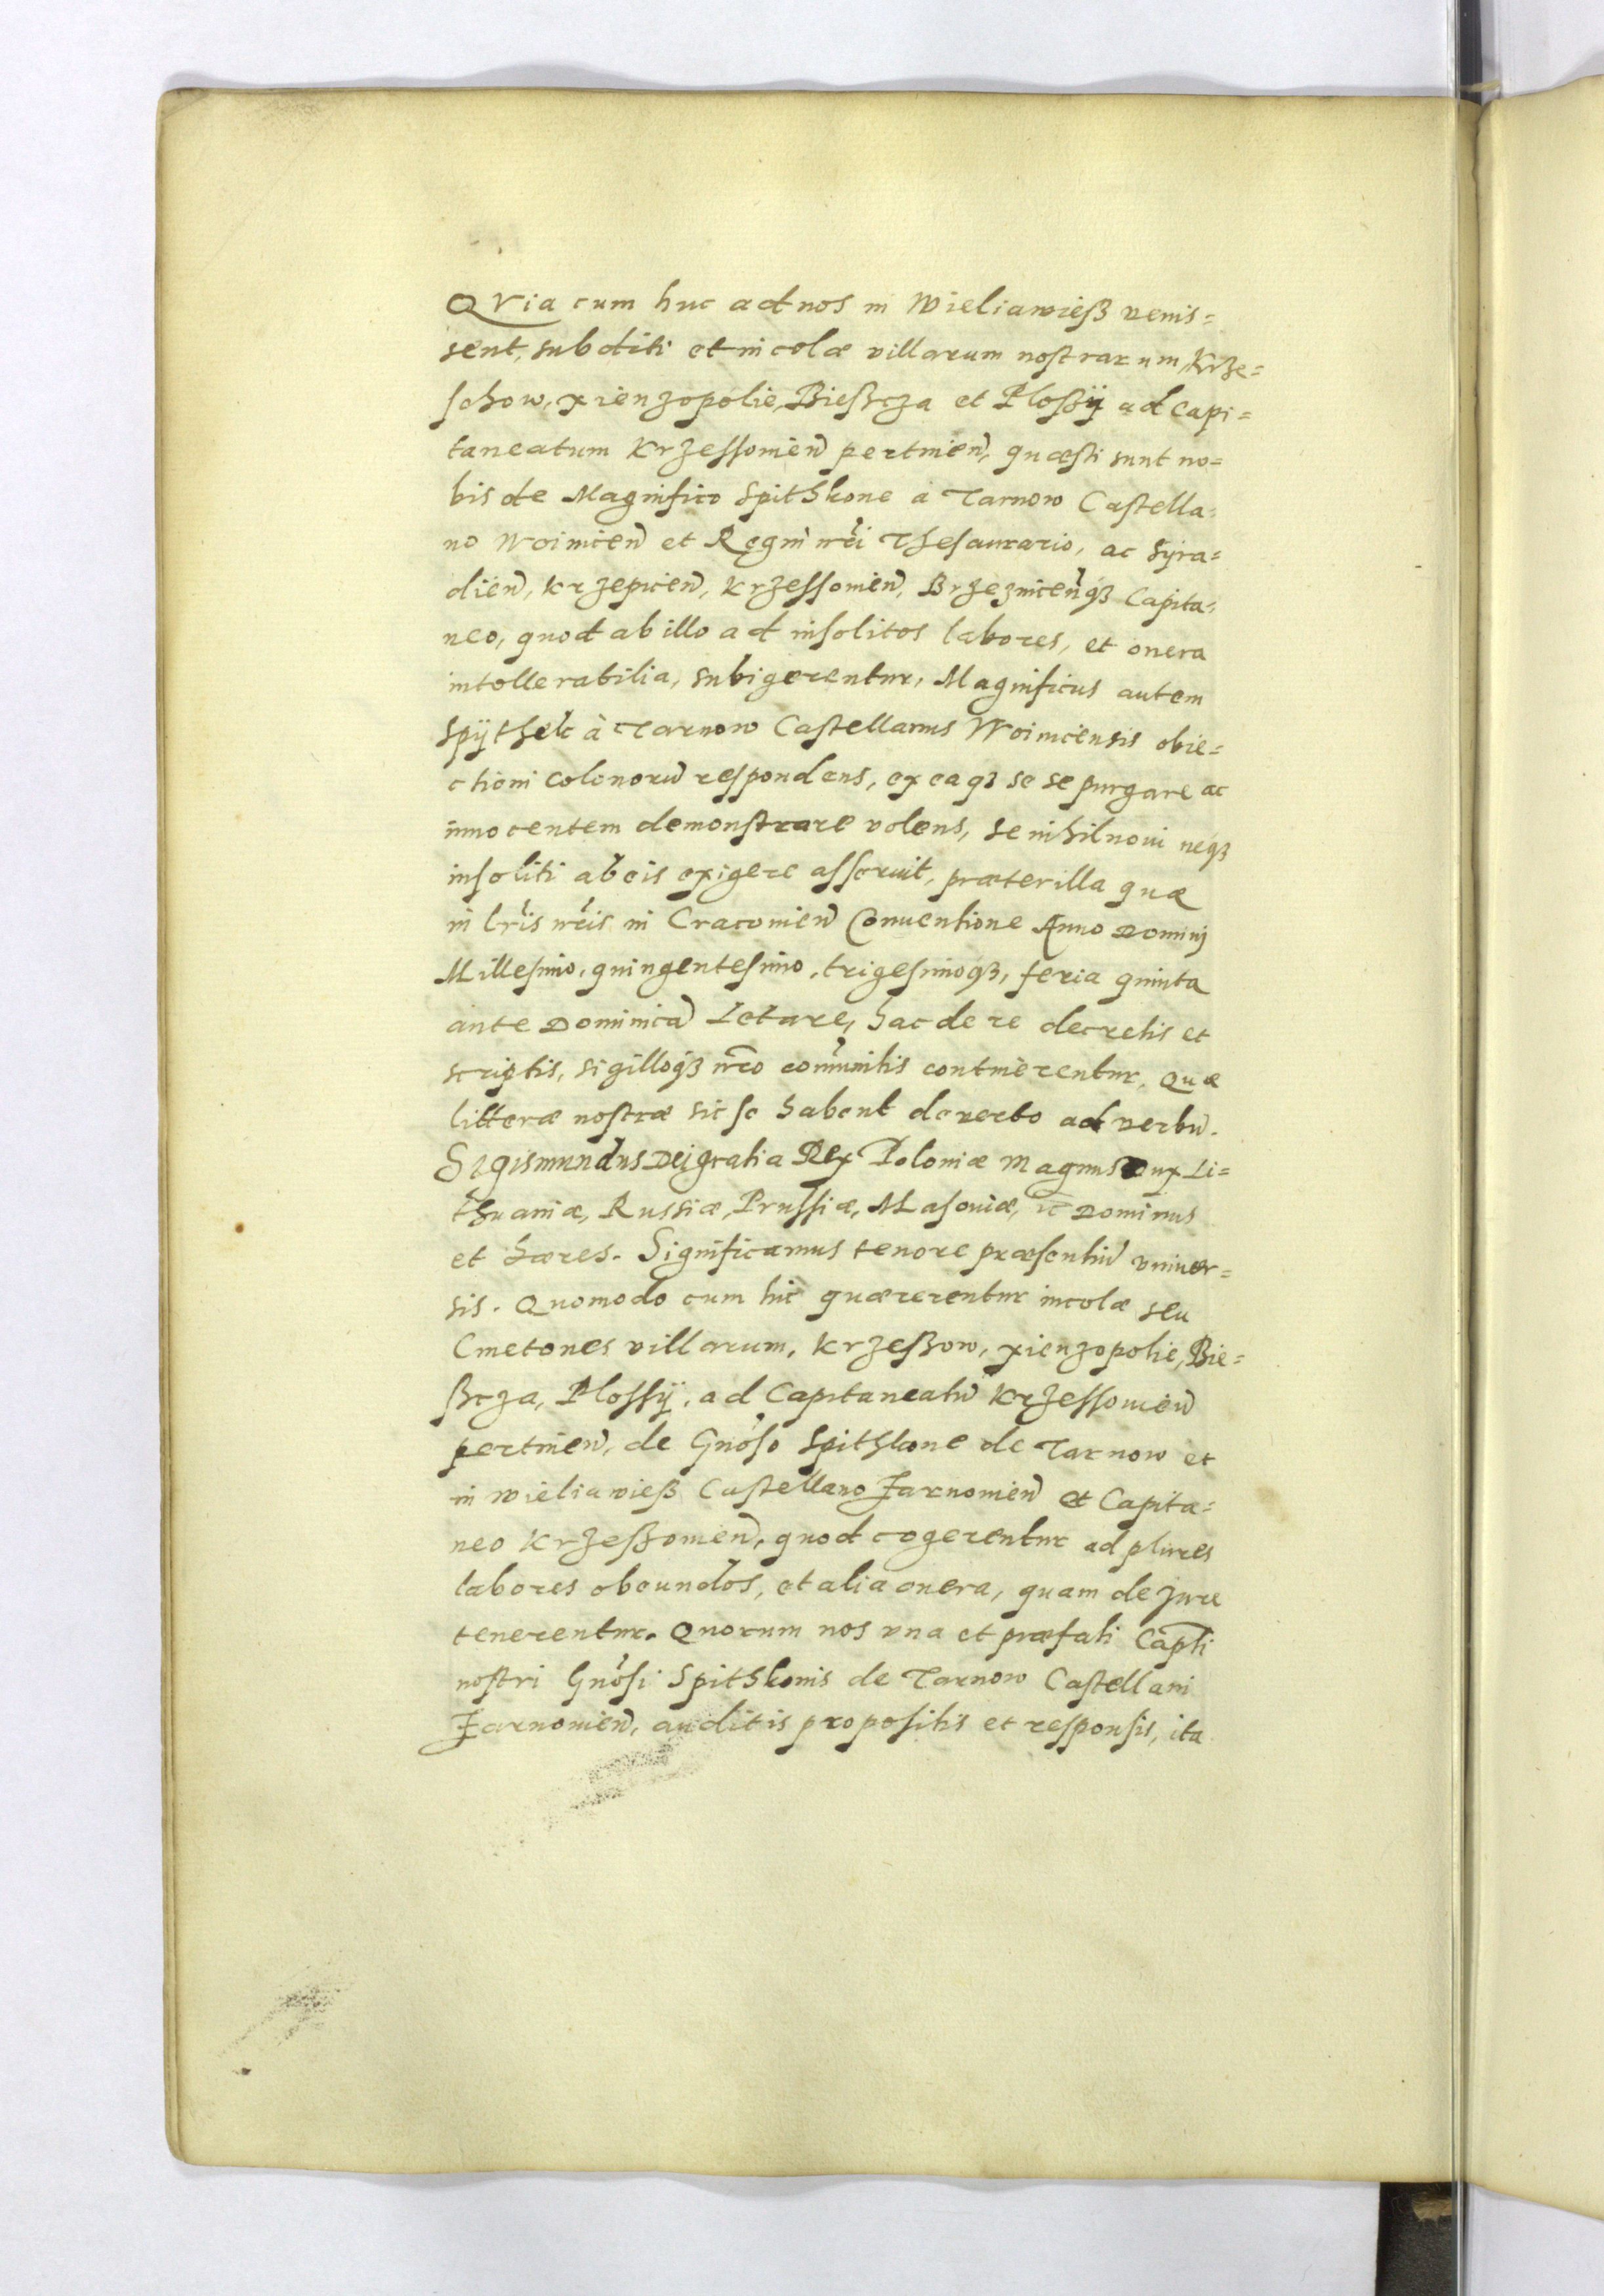 QVia cum huc ad nos in Wieliawieß venis=
sent, subditi et incolæ villarum nostrarum, Krze=
schow, xienzopolie, Bießcza et Ploßÿ ad Capi=
taneatum Krzessovien̄ pertinen̄, quæsti sunt no=
bis de Magnifico Spithkone à Tarnow Castella=
no Woinicen̄ et Regni nr̄i Thesaurario, ac Syra=
dien̄, Krzepicen̄, Krzessovien̄, Brzeznicen̄qꝫ Capita=
neo, quod ab illo ad insolitos labores, et onera
intollerabilia, subigerentur, Magnificus autem
Spÿthek à Tarnow Castellanus Woinicensis obie=
ctioni colonorū respondens, ex eaqꝫ se se purgare ac
innocentem demonstrare volens, se nihil novi neqꝫ
insoliti ab eis exigere asseruit, præter illa quæ
in lr̄is nr̄is in Cracovien̄ Conventione Anno Dominj
Millesimo, quingentesimo, trigesimoqꝫ, feria quinta
ante Dominicā Letare, hac de re decretis et
scriptis, sigilloqꝫ nr̄o com̄unitis continerentur, Quæ
litteræ nostræ sic se habent de verbo ad verbū.
Sigismundus Dei gratia Rex Poloniæ Magnus Dux Li=
thuaniæ, Russiæ, Prussiæ, Masoviæ, ꝛc Dominus
et hæres. Significamus tenore præsentiū vniver=
sis. Quomodo cum hic quærerentur incolæ seu
Cmetones villarum, Krzeßow, xienzopolie, Bie=
ßcza, Plossÿ, ad Capitaneatū Krzessovien̄
pertinen̄, de Gn̄oso Spithkone de Tarnow et
in Wieliawieß Castellano Zarnovien̄ et Capita=
neo Krzeßovien̄, quod cogerentur ad plures
labores obeundos, et alia onera, quam de jure
tenerentur. Quorum nos vna et præfati Cap̄ti
nostri Gn̄osi Spithkonis de Tarnow Castellani
Zarnovien̄, auditis propositis et responsis, ita